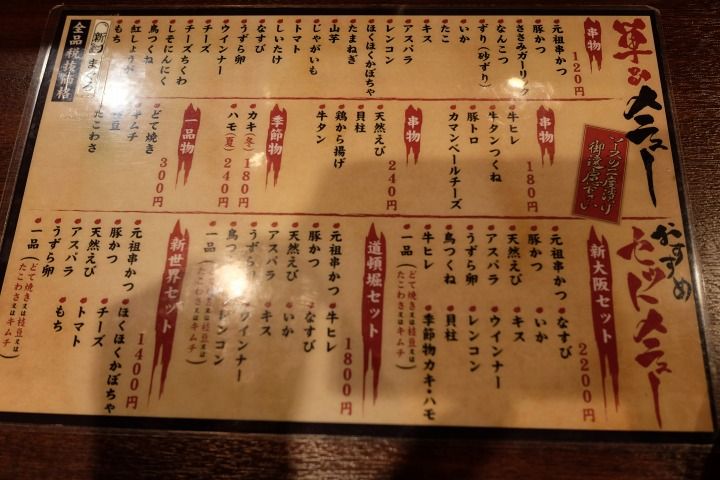 単品メニュー
ソースの二度漬け
御遠慮下さい
串物
120円
元祖串かつ
豚かつ
ささみガーリック
なんこつ
ずり(砂ずり)
いか
たこ
キス
アスパラ
レンコン
ほくほくかぼちゃ
たまねぎ
じゃがいも
山芋
トマト
しいたけ
なすび
うずら卵
ウインナー
チーズ
チーズちくわ
しそにんにく
鳥つくね
紅しょうが
もち
全品税抜価格
串物
180円
牛ヒレ
牛タンつくね
豚トロ
カマンベールチーズ
串物
240円
天然えび
貝柱
鶏から揚げ
牛タン
季節物
カキ(冬)180円
ハモ(夏)240円
一品物
300円
どて焼き
キムチ
枝豆
たこわさ
おすすめ
セットメニュー
新大阪セット
2200円
元祖串かつ
豚かつ
天然えび
アスパラ
うずら卵
鳥つくね
牛ヒレ
一品(どて焼き又は枝豆又はたこわさ又はキムチ)
なすび
いか
キス
ウインナー
レンコン
貝柱
季節物カキ・ハモ
道頓堀セット
1800円
元祖串かつ
豚かつ
天然えび
アスパラ
うずら卵
鳥つくね
一品(どて焼き又は枝豆又はたこわさ又はキムチ)
牛ヒレ
なすび
いか
キス
ウインナー
レンコン
新世界セット
1400円
元祖串かつ
豚かつ
天然えび
アスパラ
うずら卵
一品(どて焼き又は枝豆又はたこわさ又はキムチ)
ほくほくかぼちゃ
チーズ
トマト
もち